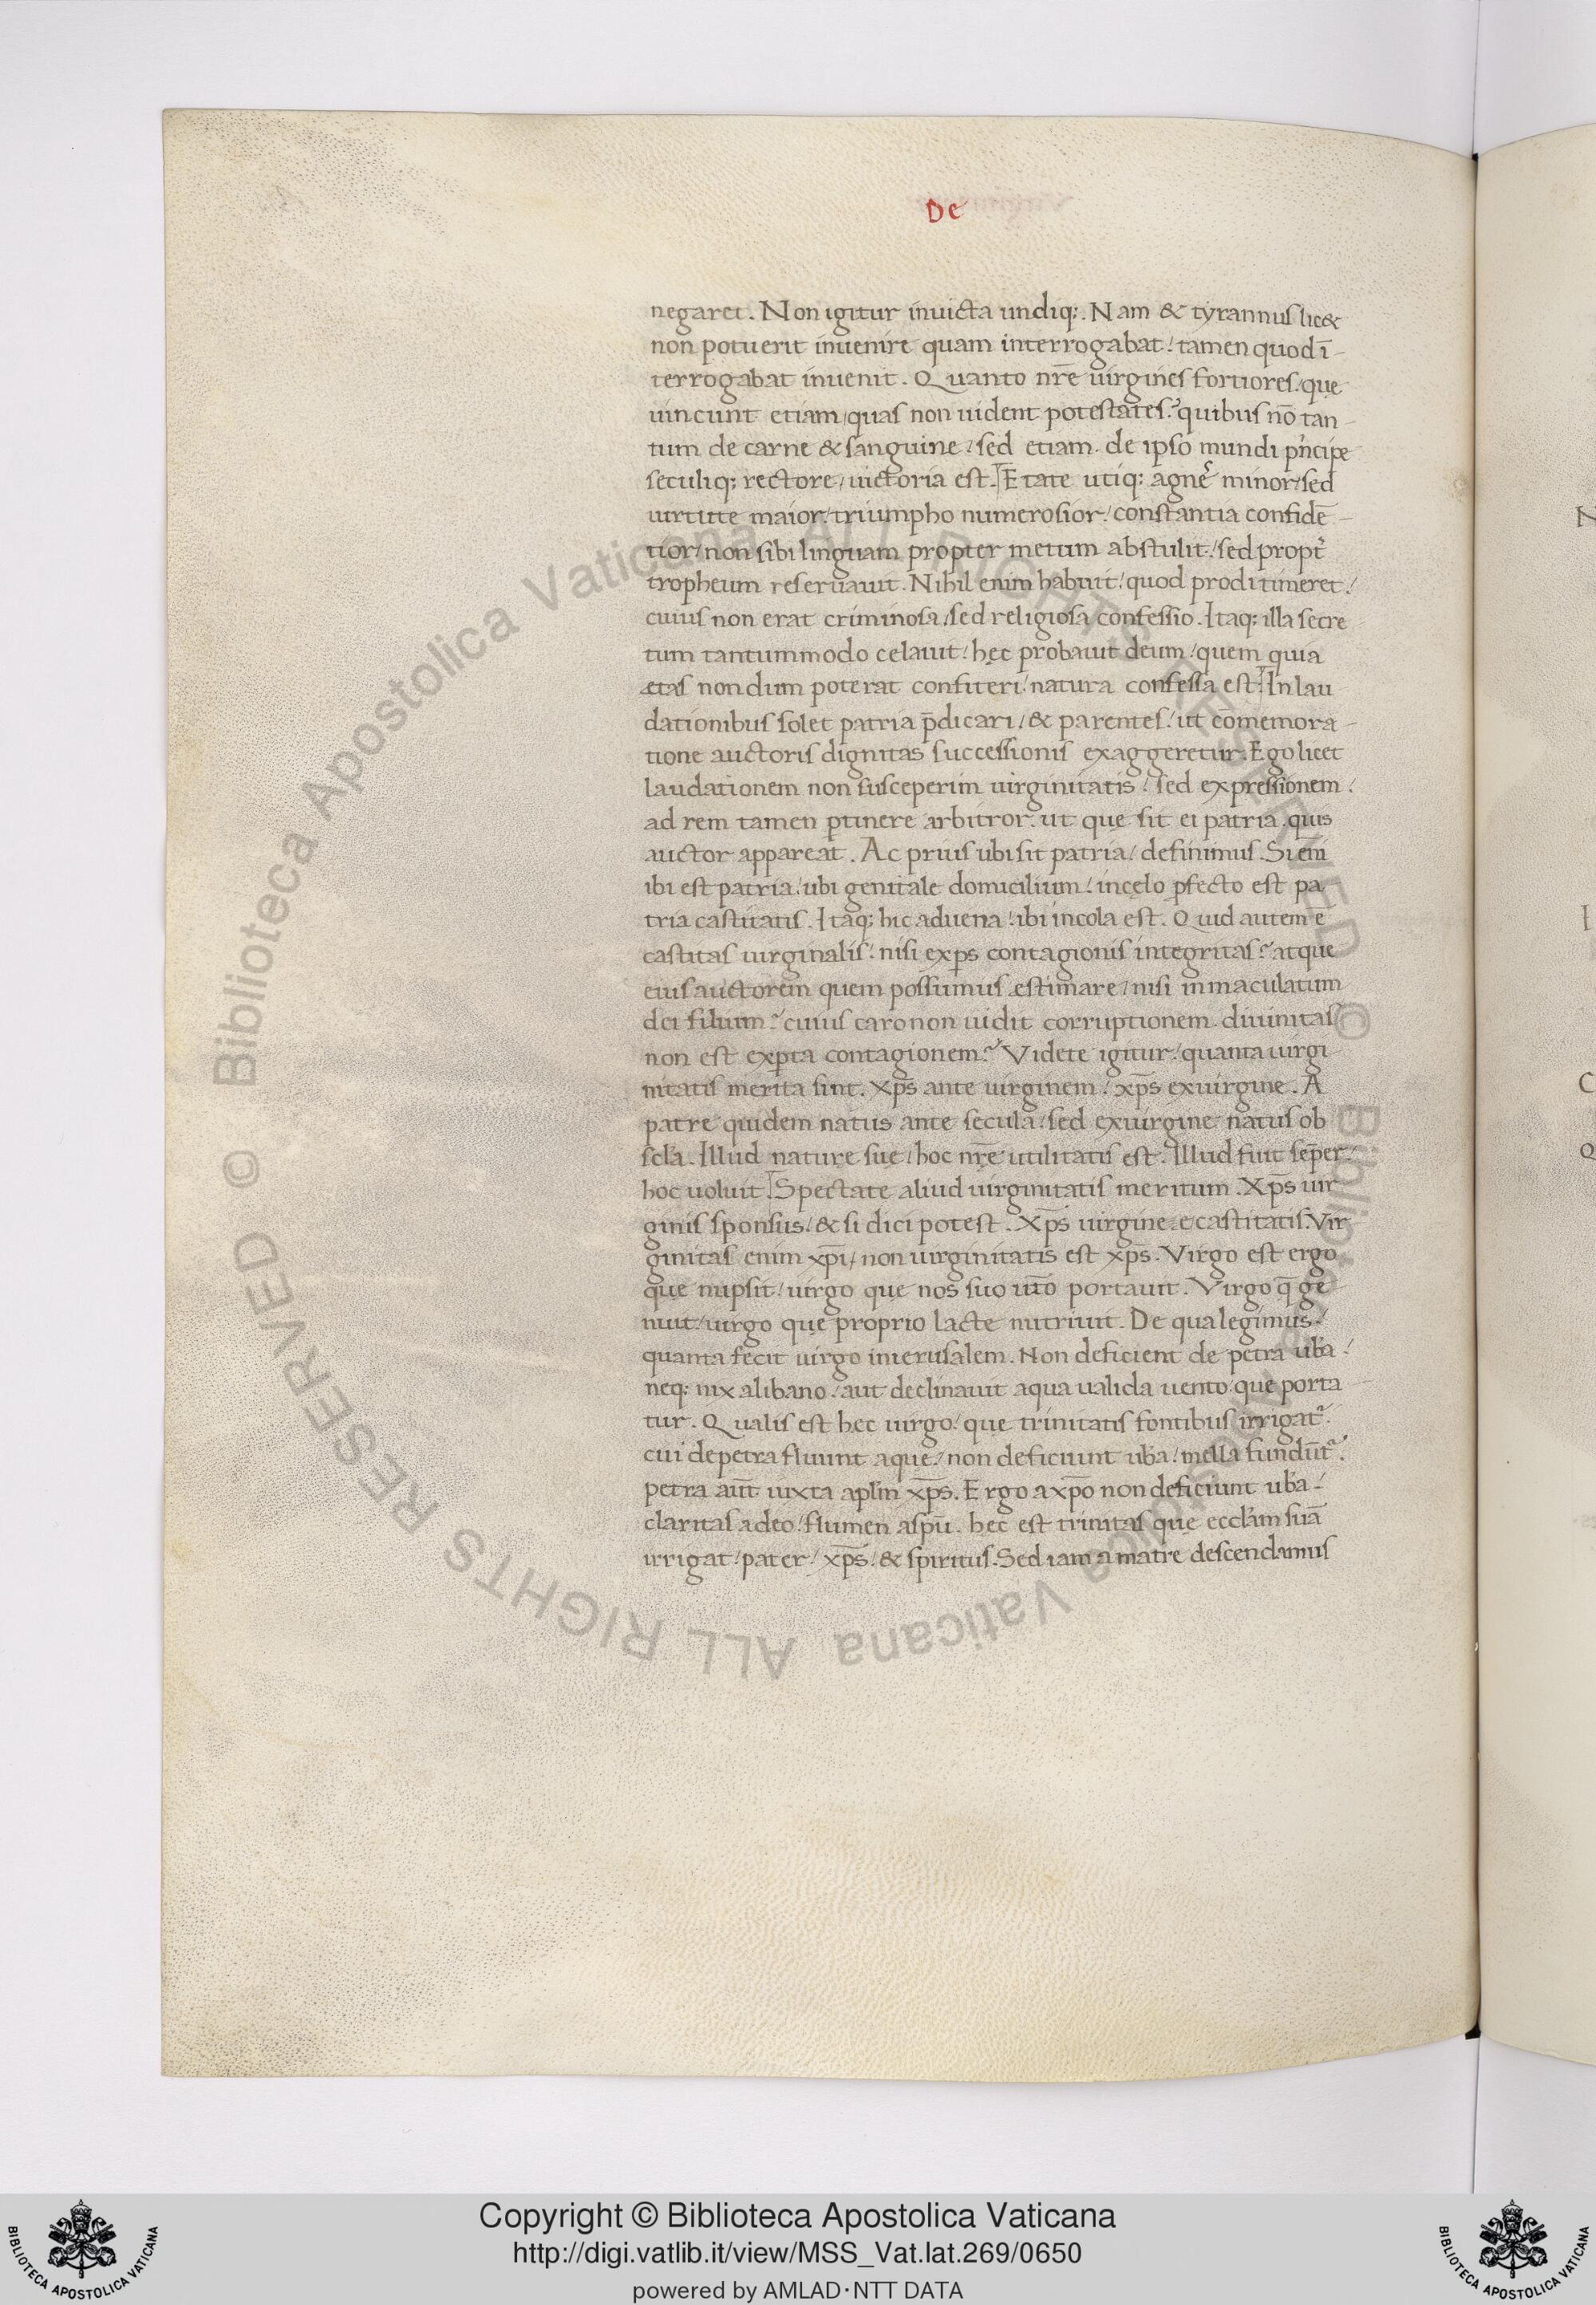 De
negaret. Non igitur inuicta undiq;. Nam & tyrannus lic&
non potuerit inuenire quam interrogabat / tamen quod ī-
terrogabat inuenit. Quanto nr̄e uirgines fortiores / que
uincunt etiam / quas non uident potestates? quibus nō tan-
tum de carne & sanguine / sed etiam de ipso mundi pͥncipe
seculiq; rectore / uictoria est. Etate utiq; agnes minor / sed
uirtute maior / triumpho numerosior / constantia confidē-
tior / non sibi linguam propter metum abstulit / sed propt̄
tropheum reseruauit. Nihil enim habuit / quod prodi timeret /
cuius non erat criminosa / sed religiosa confessio. Itaq; illa secre
tum tantummodo celauit / hęc probauit deum / quem quia
ętas nondum poterat confiteri / natura confessa est. In lau
dationibus solet patria p̄dicari / & parentes / ut cōmemora-
tione auctoris dignitas successionis exaggeretur. Ego licet
laudationem non susceperim uirginitatis / sed expressionem /
ad rem tamen ꝑtinere arbitror. ut quę sit ei patria. quis
auctor appareat. Ac prius ubi sit patria / definimus. Si em̄
ibi est patria / ubi genitale domicilium / in cęlo ꝓfecto est pa
tria castitatis. Itaq; hic aduena / ibi incola est. Quid autem ē
castitas uirginalis / nisi exꝑs contagionis integritas? atque
eius auctorem quem possumus ęstimare / nisi inmaculatum
dei filium? cuius caro non uidit corruptionem. diuinitas
non est exꝑta contagionem? Videte igitur / quanta uirgi
nitatis merita sint. Xp̄s ante uirginem / xp̄s ex uirgine. A
patre quidem natus ante secula / sed ex uirgine natus ob
scl̄a. Illud naturę suę / hoc nr̄ę utilitatis est. Illud fuit sēper /
hoc uoluit. Spectate aliud uirginitatis meritum. Xp̄s uir
ginis sponsus / & si dici potest. Xp̄s uirgineę castitatis. Vir
ginitas enim xp̄i / non uirginitatis est xp̄s. Virgo est ergo
quę nupsit / uirgo quę nos suo ut̄o portauit. Virgo q̄ ge
nuit / uirgo quę proprio lacte nutriuit. De qua legimus /
quanta fecit uirgo in ierusalem. Non deficient de petra ub̄a /
neq; nix a libano / aut declinauit aqua ualida uento / quę porta
tur. Qualis est hęc uirgo / quę trinitatis fontibus irrigat̄?
cui de petra fluunt aquę / non deficiunt ub̄a / mella fundūt̄?
petra aūt iuxta apl̄m xp̄s. Ergo a xp̄o non deficiunt ub̄a /
claritas a deo / flumen a spū. hęc est trinitas quę eccl̄am suā
irrigat / pater / xp̄s / & spiritus. Sed iam a matre descendamus
Copyright © Biblioteca Apostolica Vaticana
http://digi.vatlib.it/view/MSS_Vat.lat.269/0650
powered by AMLAD·NTT DATA